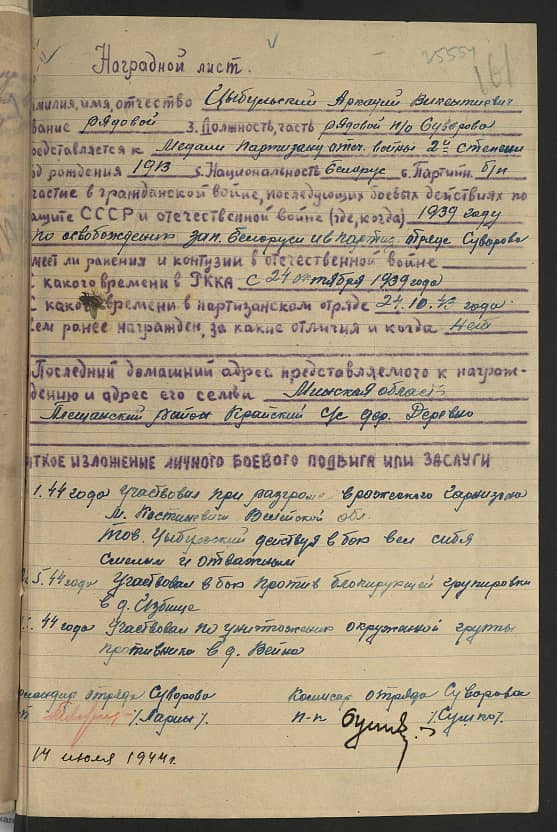 25554
161
Наградной лист.
амилия, имя, отчество Цыбульский Аркадий Викентьевич
вание рядовой 3. Должность, часть рядовой п/о Суворова
редставляется к Медали партизану отеч. войны 2й степени
од рождения 1913 5. Национальность Беларус 6. Партийн. б/п
частие в гражданской войне, последующих боевых действиях по
ащите СССР и отечественной войне (где, когда) 1939 году
по освобождению зап. Белоруси и в партиз. отряде Суворова
меет ли ранения и контузии в отечественной войне
С какого времени в РККА с 24 октября 1939 года
С какого времени в партизанском отряде 24.10.43 года
ем ранее награжден, за какие отличия и когда Нет
Последний домашний адрес представляемого к награж-
дению и адрес его семьи Минская область
Плещанский район Крайский с/с дер. Деревно
аткое изложение личного боевого подвига или заслуги
1.44 года Участвовал при разгроме вражеского гарнизона
м. Костиневичи Вилейской обл.
тов. Цыбульский действуя в бою вел себя
смелым и отважным
5.44 года Участвовал в бою против блокирующей группировки
в д. Избище
44 года Участвовал по уничтожению окруженной группы
противника в д. Вейно
омандир отряда Суворова Комиссар отряда Суворова
/Ларин/. п-п /Сушко/.
14 июля 1944 г.